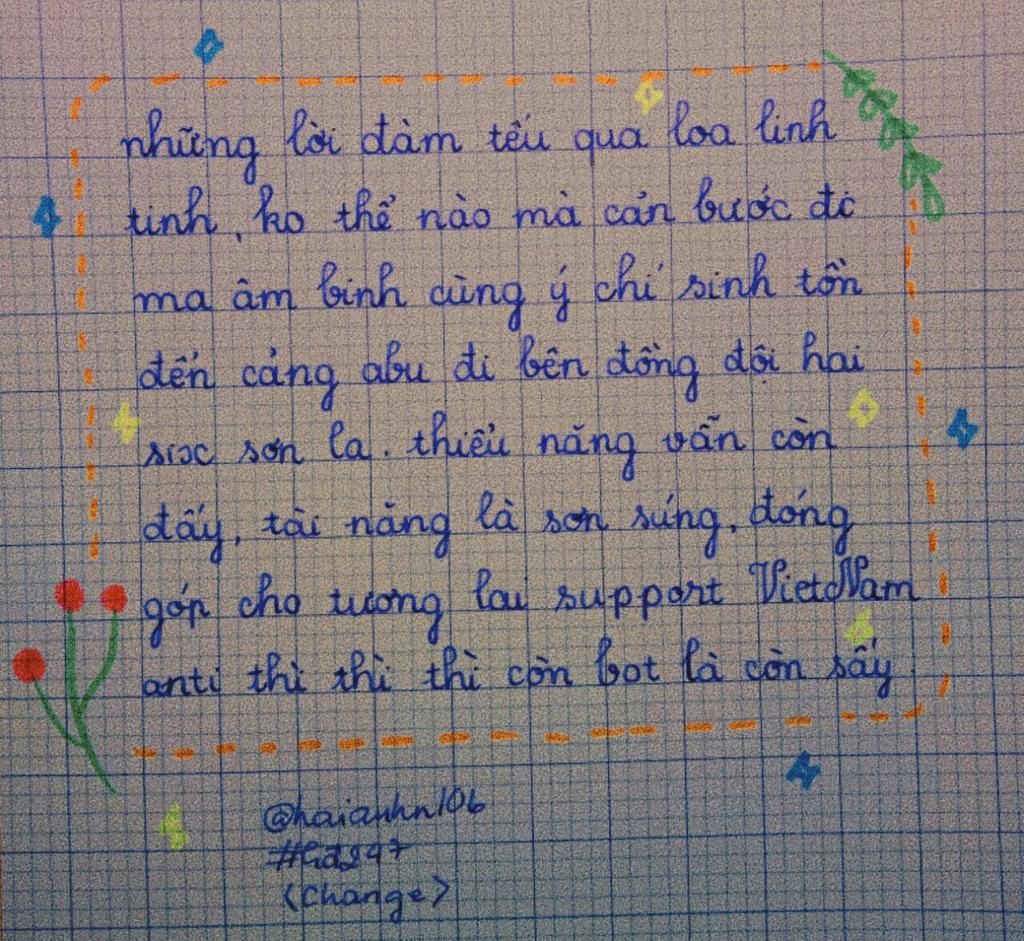 những lời đàm tếu qua loa linh
tinh, ko thể nào mà cản bước đc
ma âm binh cùng ý chí sinh tồn
đến cảng abu đi bên đồng đội hai
sọc sơn la. thiểu năng vẫn còn
đấy, tài năng là sơn súng, đóng
góp cho tương lai support VietNam
anti thì thì thì còn bot là còn sấy
@haianhn106
(Change)